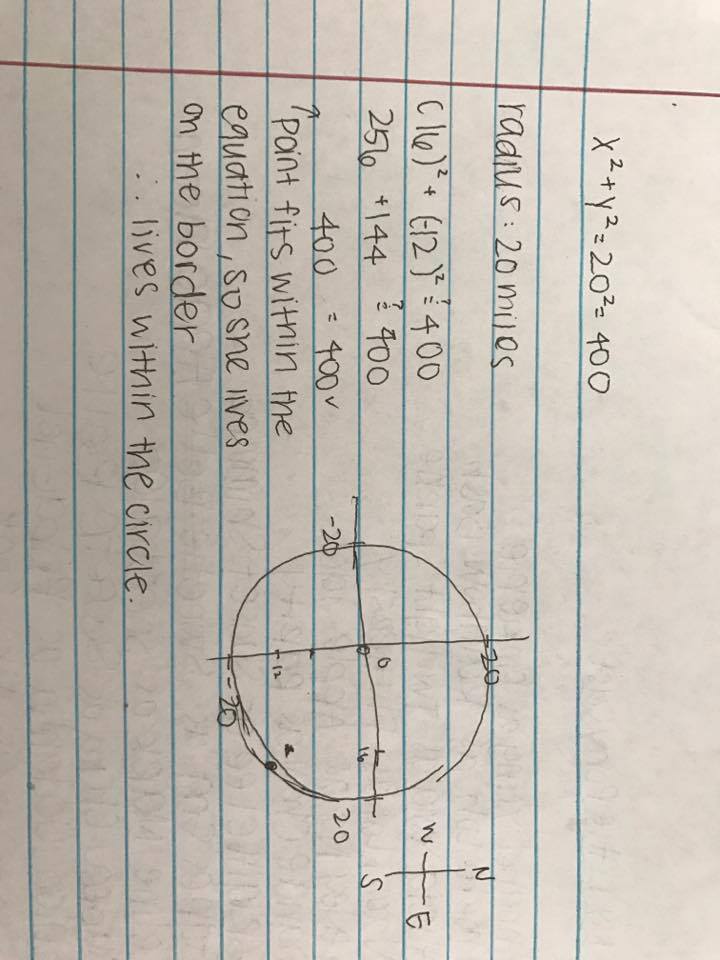 x² + y² = 20² = 400
radius: 20 miles
(16)² + (-12)² ≟ 400
256 + 144 ≟ 400
400 = 400✓
↑
point fits within the
equation, so she lives
on the border
∴ lives within the circle.
20
-20
0
16
20
-12
-20
N
W
E
S